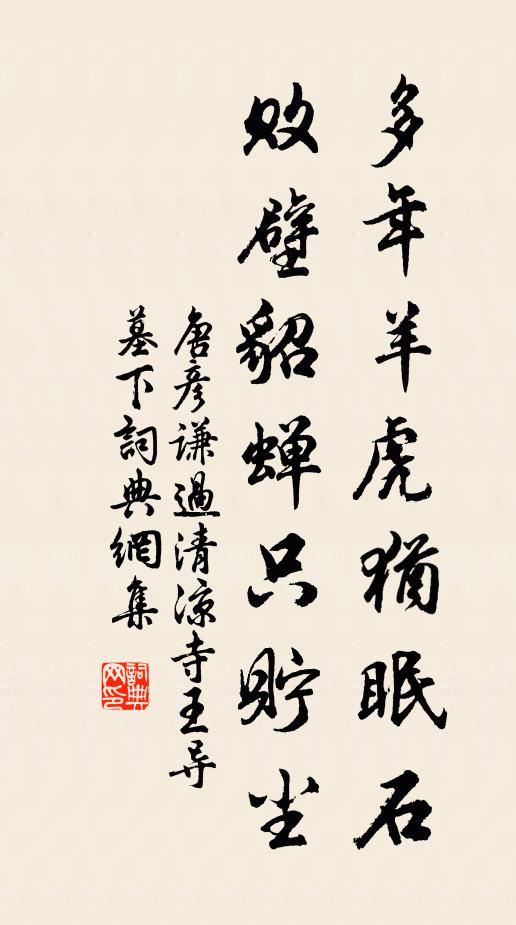 多年羊虎犹眠石
败壁貂蝉只貯尘
唐彦谦過清凉寺王导
墓下詞典網集
詞典
网印